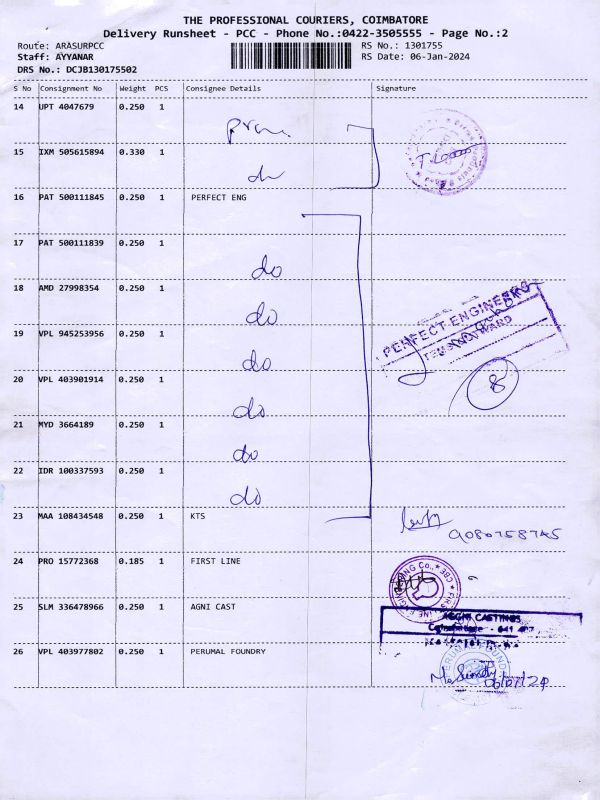 THE PROFESSIONAL COURIERS, COIMBATORE
Delivery Runsheet - PCC - Phone No.:0422-3505555 - Page No.:2
Route: ARASURPCC RS No.: 1301755
Staff: AYYANAR RS Date: 06-Jan-2024
DRS No.: DCJB130175502
S No Consignment No Weight PCS Consignee Details Signature
14 UPT 4047679 0.250 1
15 IXM 505615894 0.330 1
16 PAT 500111845 0.250 1 PERFECT ENG
17 PAT 500111839 0.250 1
do
18 AMD 27998354 0.250 1
do
PERFECT ENGINEERS
19 VPL 945253956 0.250 1
do
20 VPL 403901914 0.250 1
do
8
21 MYD 3664189 0.250 1
do
22 IDR 100337593 0.250 1
do
23 MAA 108434548 0.250 1 KTS
9080758745
24 PRO 15772368 0.185 1 FIRST LINE
25 SLM 336478966 0.250 1 AGNI CAST
26 VPL 403977802 0.250 1 PERUMAL FOUNDRY